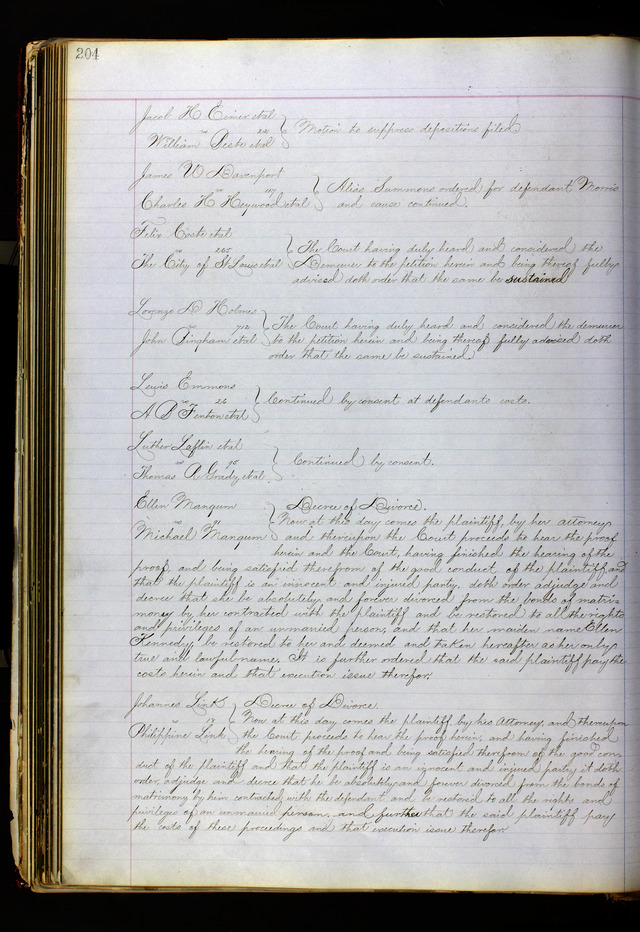 204
Jacob H Eimer etal
vs 24 Motion to suppress depositions filed
William Peste etal
James W Davenport
vs 117 Alias Summons ordered for defendant Morris
Charles H Heywood etal and cause continued.
Felix Coste etal
vs 265 The Court having duly heard and considered the
The City of St Louis etal Demurrer to the petition herein and being thereof fully
advised doth order that the same be sustained
Lorenzo D Holmes
vs 772 The Court having duly heard and considered the demurrer
John Bingham etal to the petition herein and being thereof fully advised doth
order that the same be sustained
Lewis Emmons
vs 26 Continued by consent at defendants costs.
A B Fenton etal
Luther Laflin etal
vs 90 Continued by consent.
Thomas R Grady, etal
Ellen Mangum Decree of Divorce.
vs 91 Now at this day comes the plaintiff by her attorney
Michael Mangum and thereupon the Court proceeds to hear the proof
herein and the Court, having finished the hearing of the
proof, and being satisfied therefrom of the good conduct of the plaintiff and
that the plaintiff is an innocent and injured party, doth order adjudge and
decree that she be absolutely and forever divorced from the bonds of matri-
mony by her contracted with the plaintiff and be restored to all the rights
and privileges of an unmarried person, and that her maiden name Ellen
Kennedy, be restored to her and deemed and taken hereafter as her only
true and lawful name. It is further ordered that the said plaintiff pay the
costs herein and that execution issue therefor.
Johannes Link Decree of Divorce.
vs Now at this day comes the plaintiff by his Attorney, and thereupon
Philippine Link the Court proceeds to hear the proof herein, and having finished
the hearing of the proof and being satisfied therefrom of the good con-
duct of the plaintiff and that the plaintiff is an innocent and injured party it doth
order, adjudge and decree that he be absolutely and forever divorced from the bonds of
matrimony by him contracted, with the defendant and be restored to all the rights and
privileges of an unmarried person, and further that the said plaintiff pay
the costs of these proceedings and that execution issue therefor